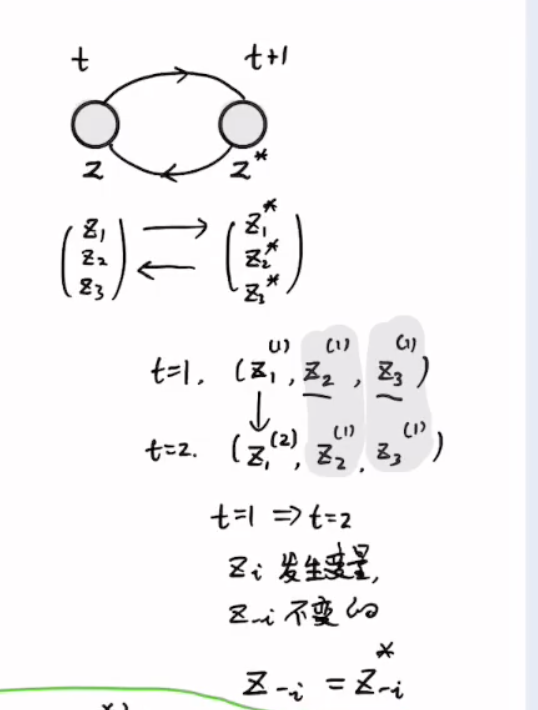 t t+1
z z*
(z₁ z₂ z₃) (z₁* z₂* z₃*)
t=1, (z₁⁽¹⁾, z₂⁽¹⁾, z₃⁽¹⁾)
t=2. (z₁⁽²⁾, z₂⁽¹⁾, z₃⁽¹⁾)
t=1 ⇒ t=2
zᵢ 发生变量,
z₋ᵢ 不变的
z₋ᵢ = z*₋ᵢ